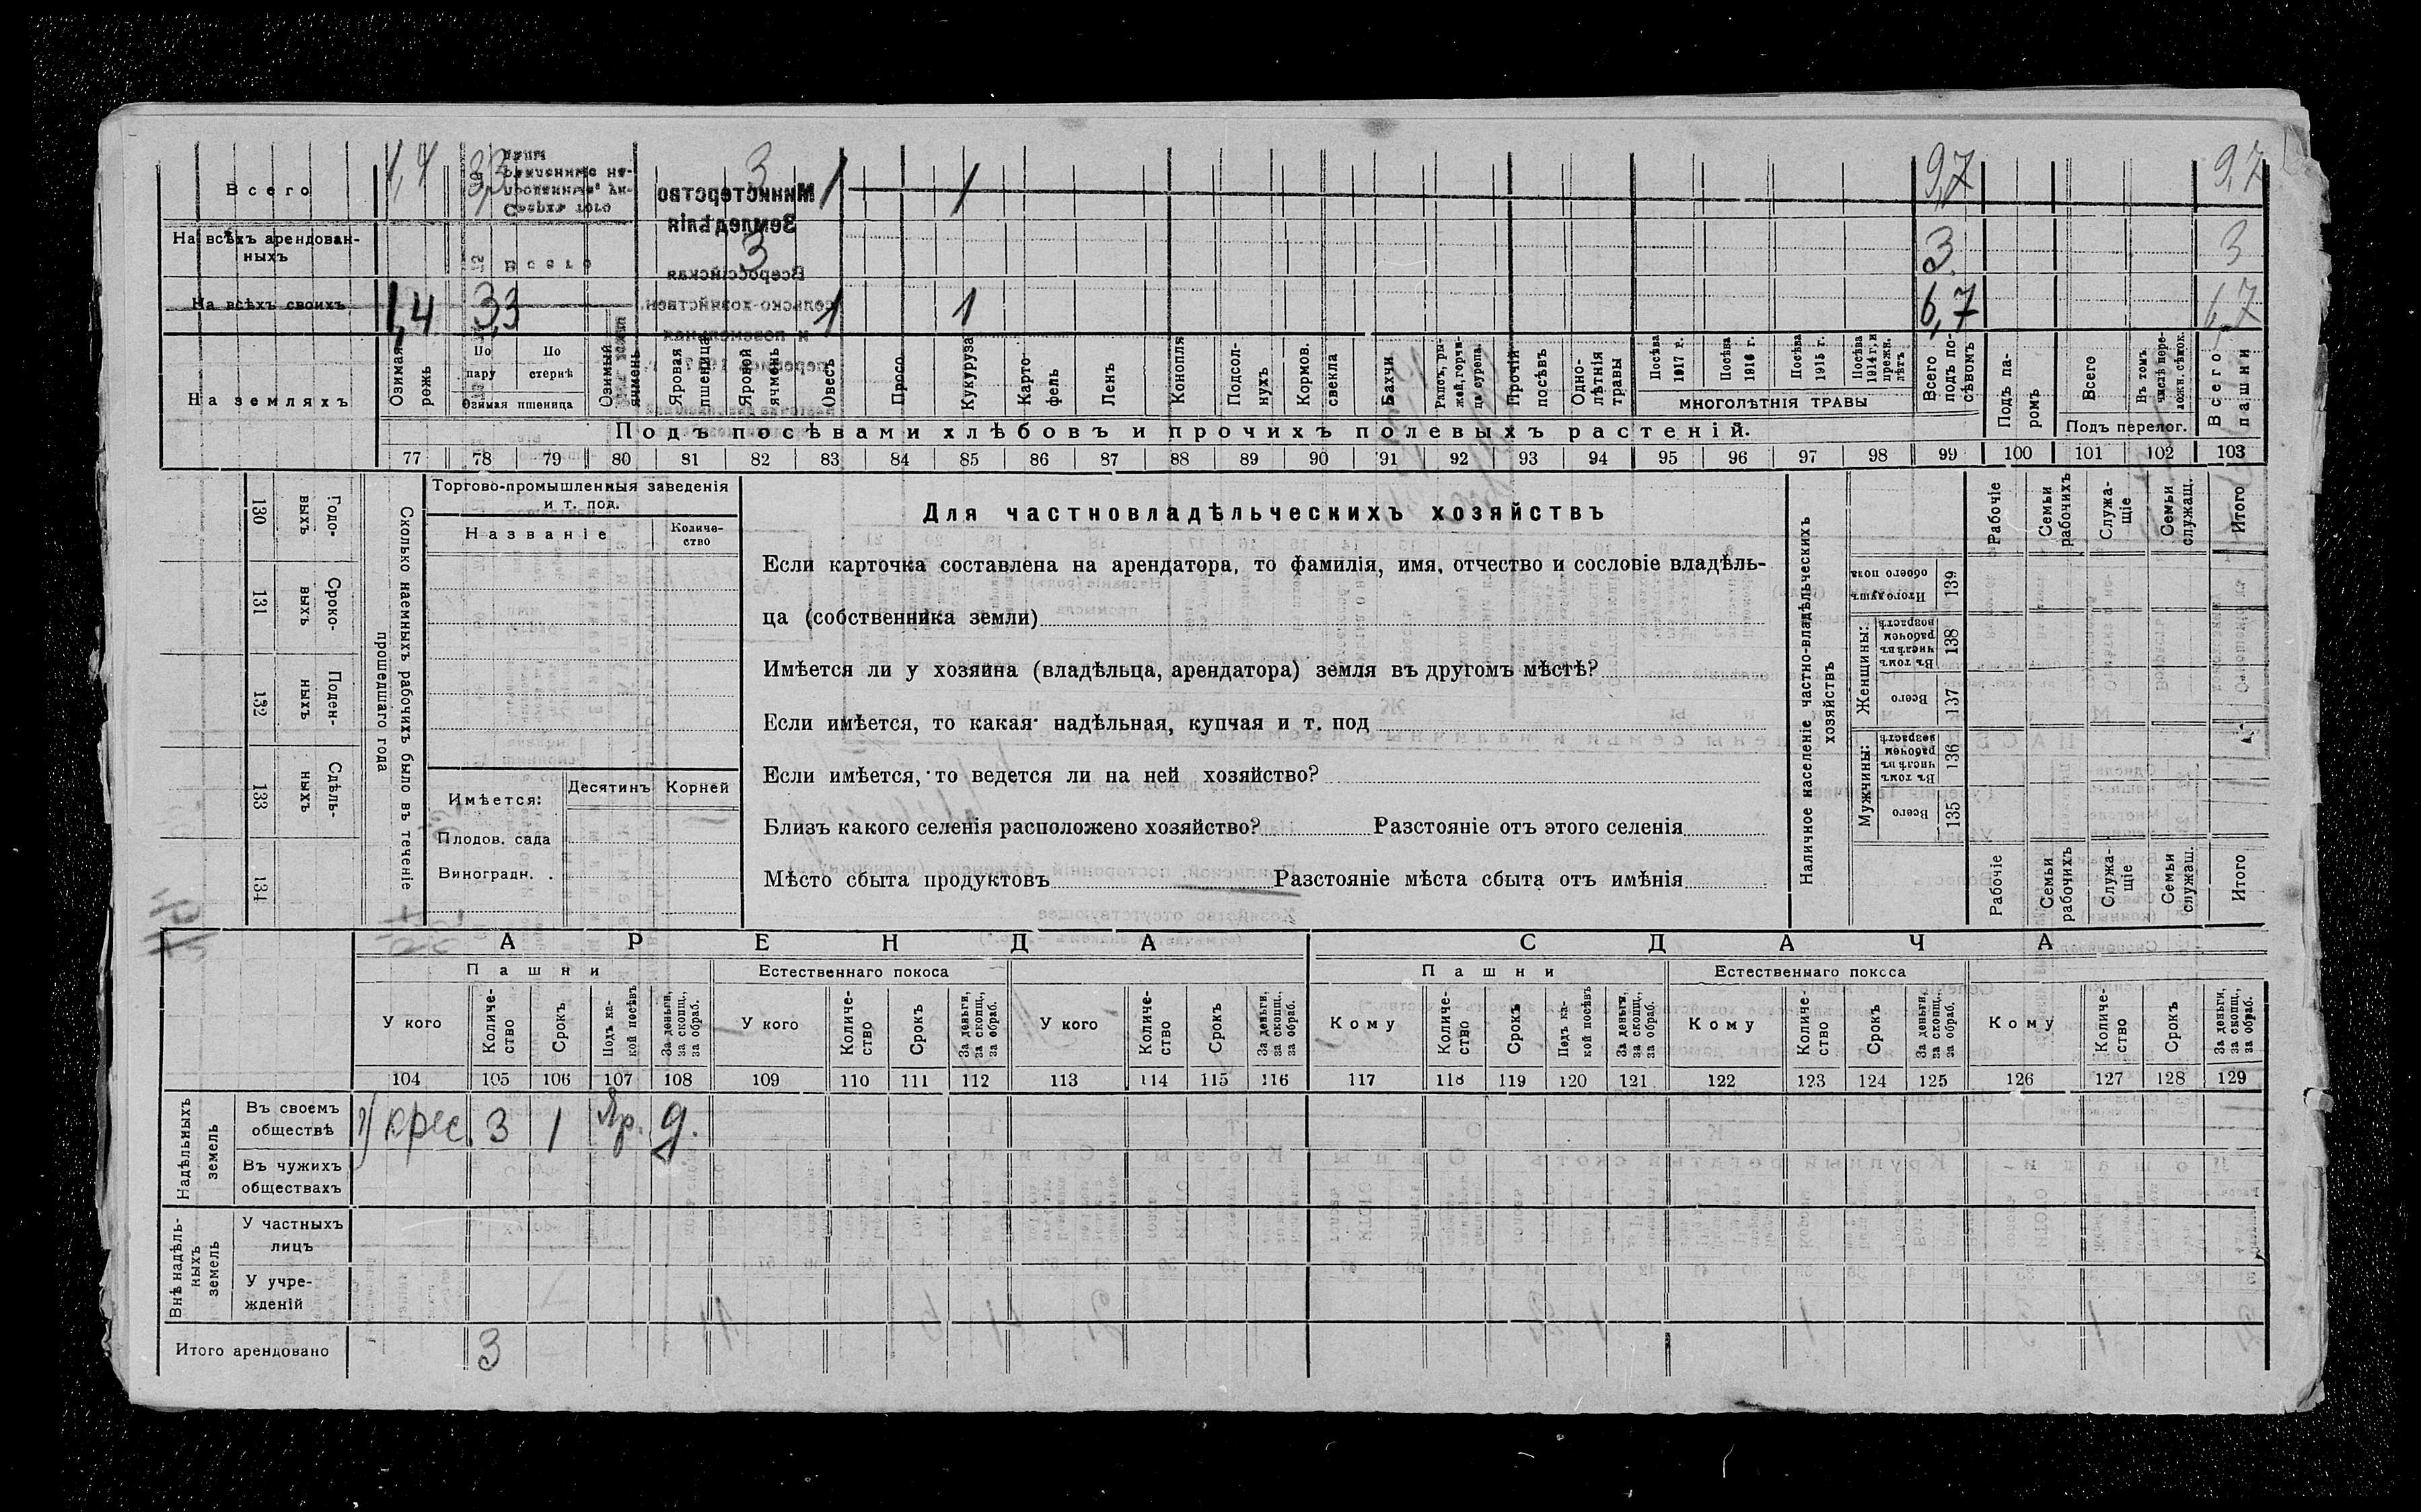 Всего 1,4 3,3 3 1 1 9,7 9,7
На всѣхъ арендован-
ныхъ 3 3 3
На всѣхъ своихъ 1,4 3,3 1 1 6,7 6,7
На земляхъ
Озимая рожь
По пару
По стернѣ
Озимая пшеница
Озимый ячмень
Яровая пшеница
Яровой ячмень
Овесъ
Просо
Кукуруза
Карто-
фель
Ленъ
Конопля
Подсол-
нухъ
Кормов.
свекла
Бахчи
Рапсъ, ры-
жей, горчи-
ца сурепа.
Прочій
посѣвъ
Одно-
лѣтнія
травы
Посѣва
1917 г.
Посѣва
1916 г.
Посѣва
1915 г.
Посѣва
1914 г. и
прежн.
лѣтъ
МНОГОЛѢТНІЯ ТРАВЫ
Всего
подъ по-
сѣвомъ
Подъ па-
ромъ
Всего
Въ томъ
числѣ пере-
ложн. сѣнок.
Подъ перелог.
Всего
пашни
Подъ посѣвами хлѣбовъ и прочихъ полевыхъ растеній.
77 78 79 80 81 82 83 84 85 86 87 88 89 90 91 92 93 94 95 96 97 98 99 100 101 102 103
130 131 132 133 134
Годо-
выхъ
Сроко-
выхъ
Поден-
ныхъ
Сдѣль-
ныхъ
Сколько наемныхъ рабочихъ было въ теченіе
прошедшаго года
Торгово-промышленныя заведенія
и т. под.
Названіе
Количе-
ство
Имѣется:
Десятинъ
Корней
Плодов. сада
Виноградн. .
Для частновладѣльческихъ хозяйствъ
Если карточка составлена на арендатора, то фамилія, имя, отчество и сословіе владѣль-
ца (собственника земли)
Имѣется ли у хозяина (владѣльца, арендатора) земля въ другомъ мѣстѣ?
Если имѣется, то какая надѣльная, купчая и т. под
Если имѣется, то ведется ли на ней хозяйство?
Близъ какого селенія расположено хозяйство? Разстояніе отъ этого селенія
Мѣсто сбыта продуктовъ Разстояніе мѣста сбыта отъ имѣнія
Наличное населеніе частно-владѣльческихъ
хозяйствъ
Рабочіе
Семьи
рабочихъ
Служа-
щіе
Семьи
служащ.
Итого
Итого душъ
обоего пола
139
Женщины:
Въ томъ
числѣ въ
рабочемъ
возрастѣ
138
Всего
137
Мужчины:
Въ томъ
числѣ въ
рабочемъ
возрастѣ
136
Всего
135
Рабочіе
Семьи
рабочихъ
Служа-
щіе
Семьи
служащ.
Итого
АРЕНДА
СДАЧА
Пашни
Естественнаго покоса
Пашни
Естественнаго покоса
У кого
Количе-
ство
Срокъ
Подъ ка-
кой посѣвъ
За деньги,
за скопщ.,
за обраб.
У кого
Количе-
ство
Срокъ
За деньги,
за скопщ.,
за обраб.
У кого
Количе-
ство
Срокъ
За деньги,
за скопщ.,
за обраб.
Кому
Количе-
ство
Срокъ
Подъ ка-
кой посѣвъ
За деньги,
за скопщ.,
за обраб.
Кому
Количе-
ство
Срокъ
За деньги,
за скопщ.,
за обраб.
Кому
Количе-
ство
Срокъ
За деньги,
за скопщ.,
за обраб.
104 105 106 107 108 109 110 111 112 113 114 115 116 117 118 119 120 121 122 123 124 125 126 127 128 129
Надѣльныхъ
земель
Въ своемъ
обществѣ
у крес. 3 1 Яр. д.
Въ чужихъ
обществахъ
Внѣ надѣль-
ныхъ
земель
У частныхъ
лицъ
У учре-
жденій
Итого арендовано 3